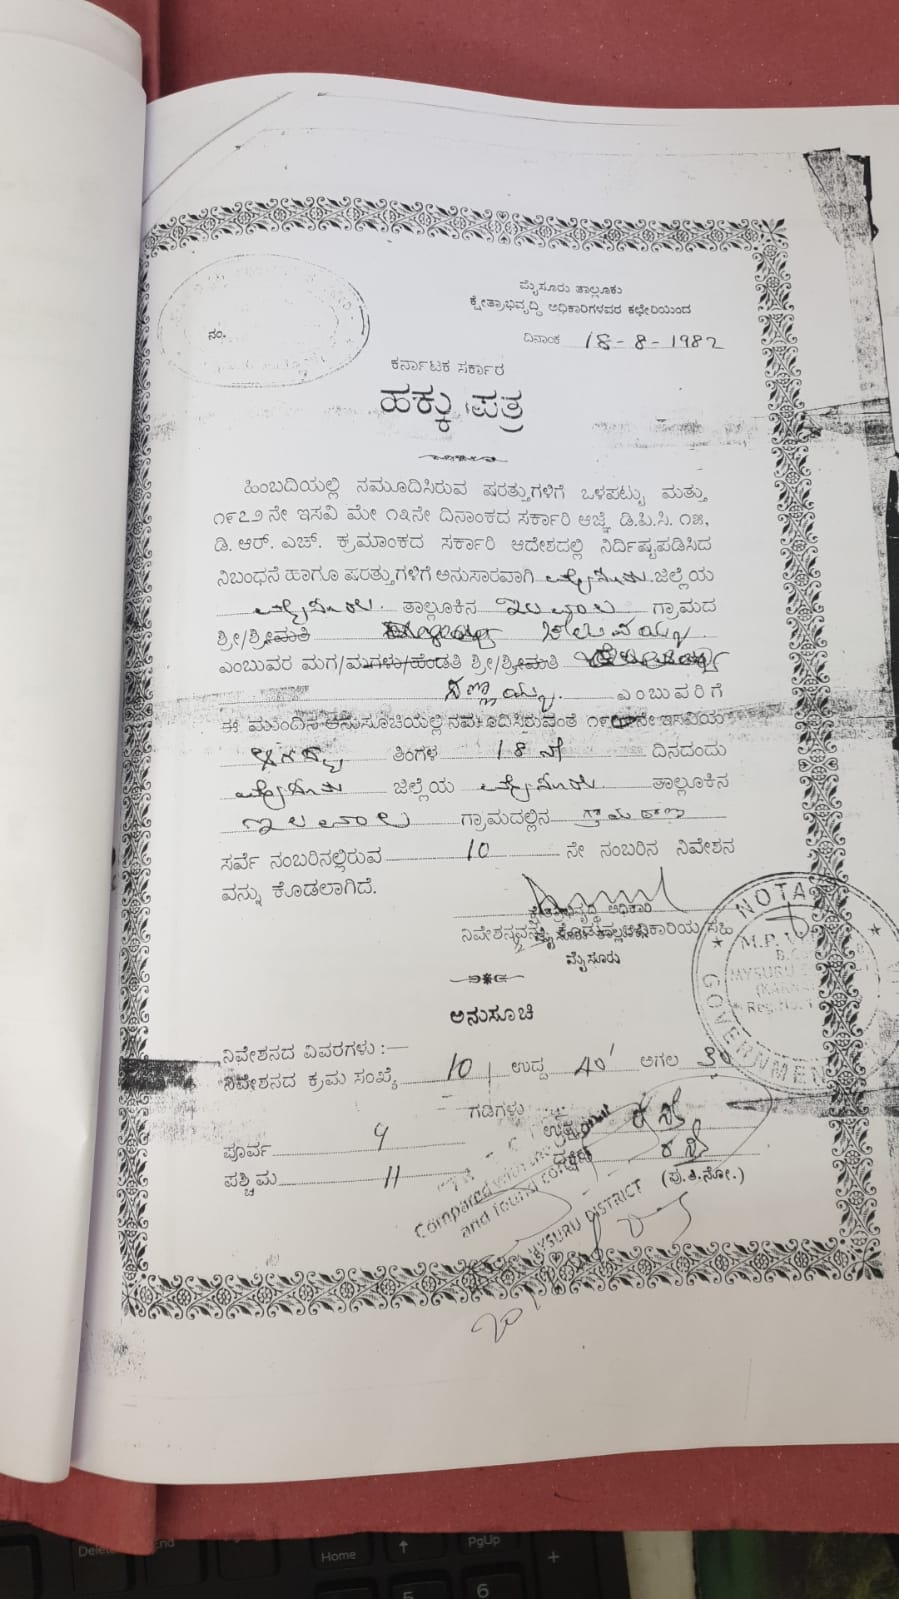 ಮೈಸೂರು ತಾಲ್ಲೂಕು
ಕ್ಷೇತ್ರಾಭಿವೃದ್ಧಿ ಅಧಿಕಾರಿಗಳವರ ಕಛೇರಿಯಿಂದ
ನಂ.
ದಿನಾಂಕ 18-8-1982
ಕರ್ನಾಟಕ ಸರ್ಕಾರ
ಹಕ್ಕು ಪತ್ರ
ಹಿಂಬದಿಯಲ್ಲಿ ನಮೂದಿಸಿರುವ ಷರತ್ತುಗಳಿಗೆ ಒಳಪಟ್ಟು ಮತ್ತು
೧೯೭೨ ನೇ ಇಸವಿ ಮೇ ೧೩ನೇ ದಿನಾಂಕದ ಸರ್ಕಾರಿ ಆಜ್ಞೆ ಡಿ.ಪಿ.ಸಿ. ೧೫,
ಡಿ. ಆರ್. ಎಚ್. ಕ್ರಮಾಂಕದ ಸರ್ಕಾರಿ ಆದೇಶದಲ್ಲಿ ನಿರ್ದಿಷ್ಟಪಡಿಸಿದ
ನಿಬಂಧನೆ ಹಾಗೂ ಷರತ್ತುಗಳಿಗೆ ಅನುಸಾರವಾಗಿ ಮೈಸೂರು ಜಿಲ್ಲೆಯ
ಮೈಸೂರು ತಾಲ್ಲೂಕಿನ ಇಲವಾಲ ಗ್ರಾಮದ
ಶ್ರೀ/ಶ್ರೀಮತಿ ಚೆಲುವಯ್ಯ
ಎಂಬುವರ ಮಗ/ಮಗಳು/ಹೆಂಡತಿ ಶ್ರೀ/ಶ್ರೀಮತಿ
ಸಣ್ಣಯ್ಯ ಎಂಬುವರಿಗೆ
ಈ ಮುಂದಿನ ಅನುಸೂಚಿಯಲ್ಲಿ ನಮೂದಿಸಿರುವಂತೆ ನೇ ಇಸವಿಯ
ಆಗಸ್ಟ್ ತಿಂಗಳ 18 ನೇ ದಿನದಂದು
ಮೈಸೂರು ಜಿಲ್ಲೆಯ ಮೈಸೂರು ತಾಲ್ಲೂಕಿನ
ಇಲವಾಲ ಗ್ರಾಮದಲ್ಲಿನ ಗ್ರಾಮಠಾಣ
ಸರ್ವೆ ನಂಬರಿನಲ್ಲಿರುವ 10 ನೇ ನಂಬರಿನ ನಿವೇಶನ
ವನ್ನು ಕೊಡಲಾಗಿದೆ.
ಕ್ಷೇತ್ರಾಭಿವೃದ್ಧಿ ಅಧಿಕಾರಿ
ನಿವೇಶನವನ್ನು ಕೊಡುವ ಅಧಿಕಾರಿಯ ಸಹಿ
ಮೈಸೂರು
NOTA
GOVERNMEN
ಅನುಸೂಚಿ
ನಿವೇಶನದ ವಿವರಗಳು :—
ನಿವೇಶನದ ಕ್ರಮ ಸಂಖ್ಯೆ 10 ಉದ್ದ 40' ಅಗಲ 30
ಗಡಿಗಳು
ಪೂರ್ವ 9 ಉತ್ತರ ರಸ್ತೆ
ಪಶ್ಚಿಮ 11 ದಕ್ಷಿಣ ರಸ್ತೆ
(ಪು.ತಿ.ನೋ.)
Compared with
and found
MYSURU DISTRICT